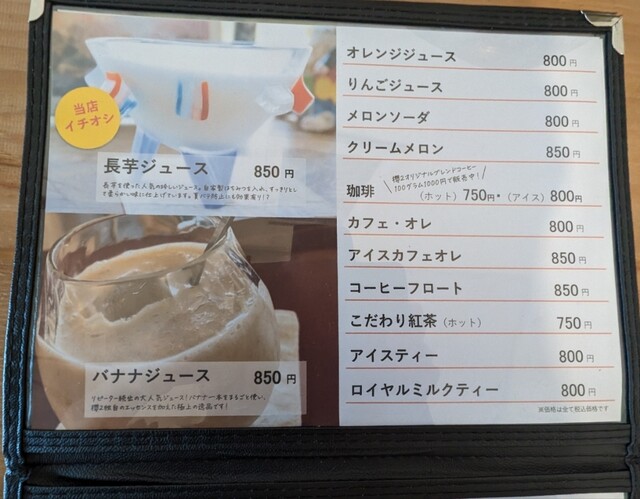 当店
イチオシ
長芋ジュース 850円
長芋を使った人気の珍しいジュース。自家製はちみつを入れ、すっきりとし
て柔らかい味に仕上げています。夏バテ防止にも効果有り!?
バナナジュース 850円
リピーター続出の大人気ジュース!バナナ一本をまるごと使い、
櫻2独自のエッセンスを加えた極上の逸品です!
オレンジジュース 800円
りんごジュース 800円
メロンソーダ 800円
クリームメロン 850円
櫻2オリジナルブレンドコーヒー
100グラム1000円で販売中!
珈琲 (ホット) 750円・(アイス) 800円
カフェ・オレ 800円
アイスカフェオレ 850円
コーヒーフロート 850円
こだわり紅茶(ホット) 750円
アイスティー 800円
ロイヤルミルクティー 800円
※価格は全て税込価格です